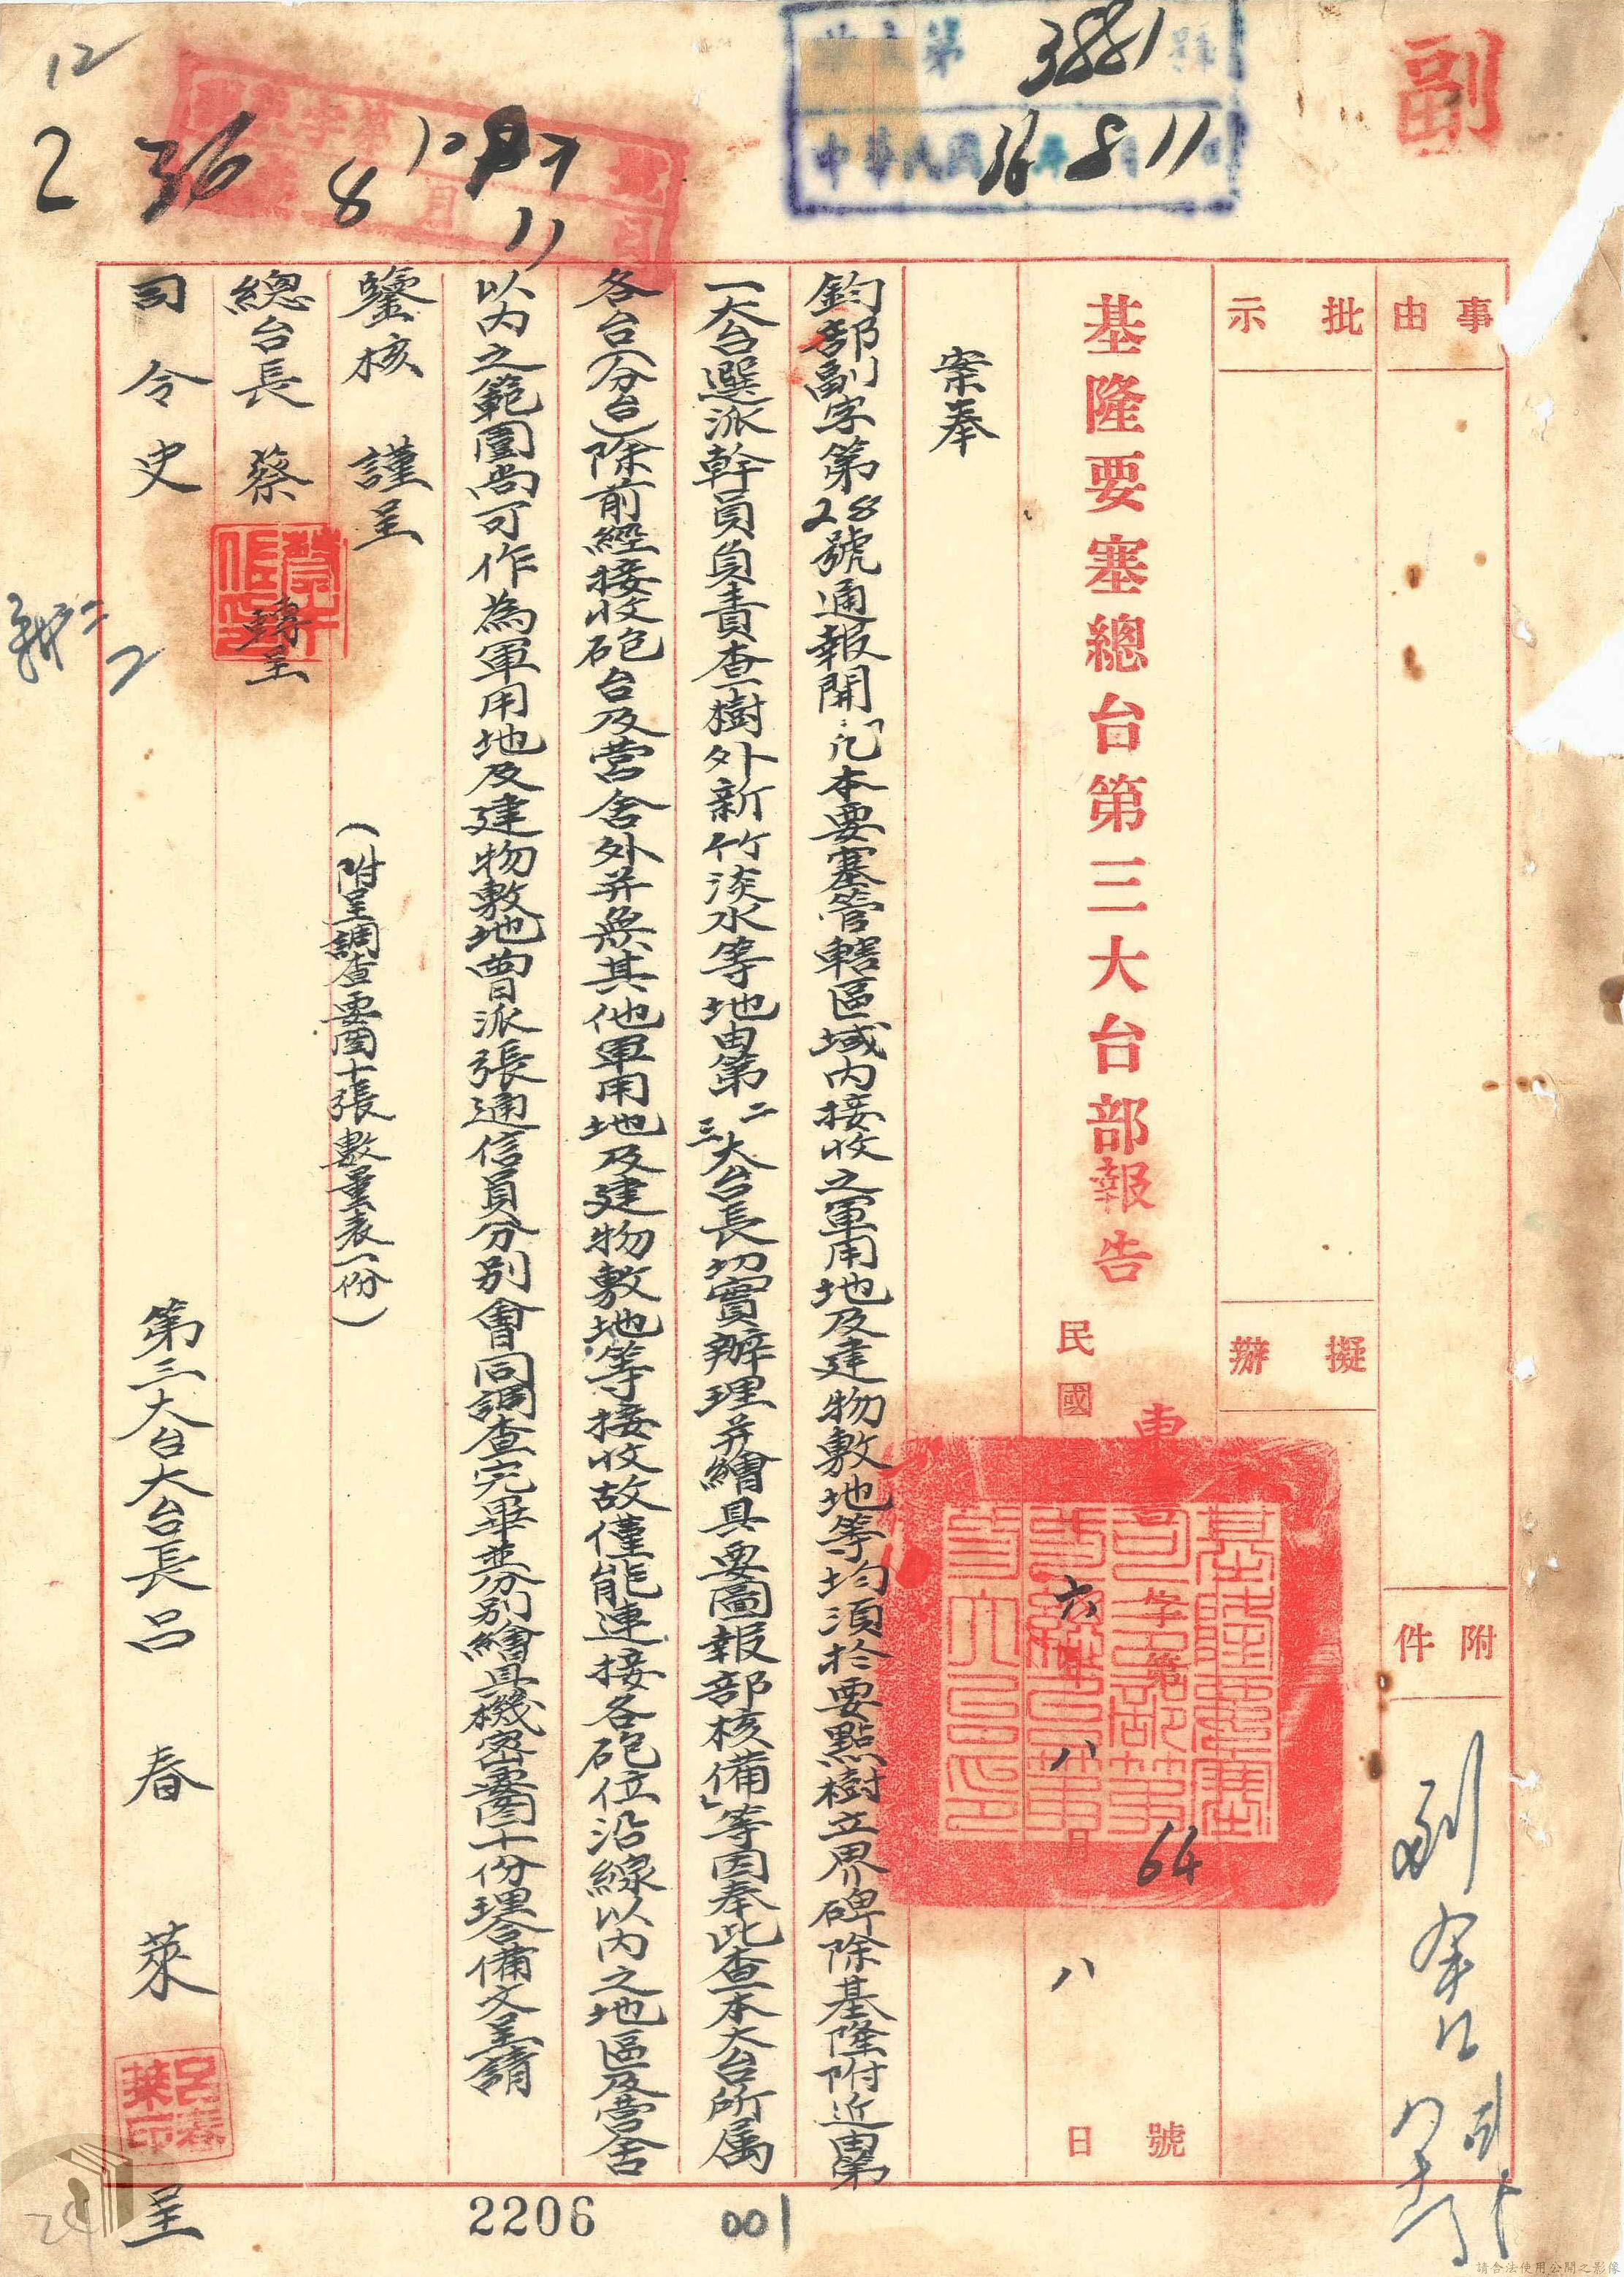 副
第 3881 號
中華民國 36 年 8 月 11 日
字第
36 8 月 11 日
12
2
事由
批示
擬辦
附件
基隆要塞總台第三大台部報告
東 字第 64 號
民國 六年 八月 八日
案奉
鈞部副字第28號通報開:「凡本要塞管轄區域內接收之軍用地及建物敷地等均須於要點樹立界碑除基隆附近由第
一大台選派幹員負責查樹外新竹淡水等地由第二三大台長切實辦理并繪具要圖報部核備」等因奉此查本大台所屬
各台(分台)除前經接收砲台及營舍外并無其他軍用地及建物敷地等接收故僅能連接各砲位沿線以內之地區及營舍
以內之範圍尚可作為軍用地及建物敷地曾派張通信員分別會同調查完畢並分別繪具機密要圖十份理合備文呈請
鑒核 謹呈
(附呈調查要圖十張數量表一份)
總台長 蔡 轉呈
司令 史
第三大台大台長呂 春 萊 呈
呂春萊印
2206
001
24
請合法使用公開之影像